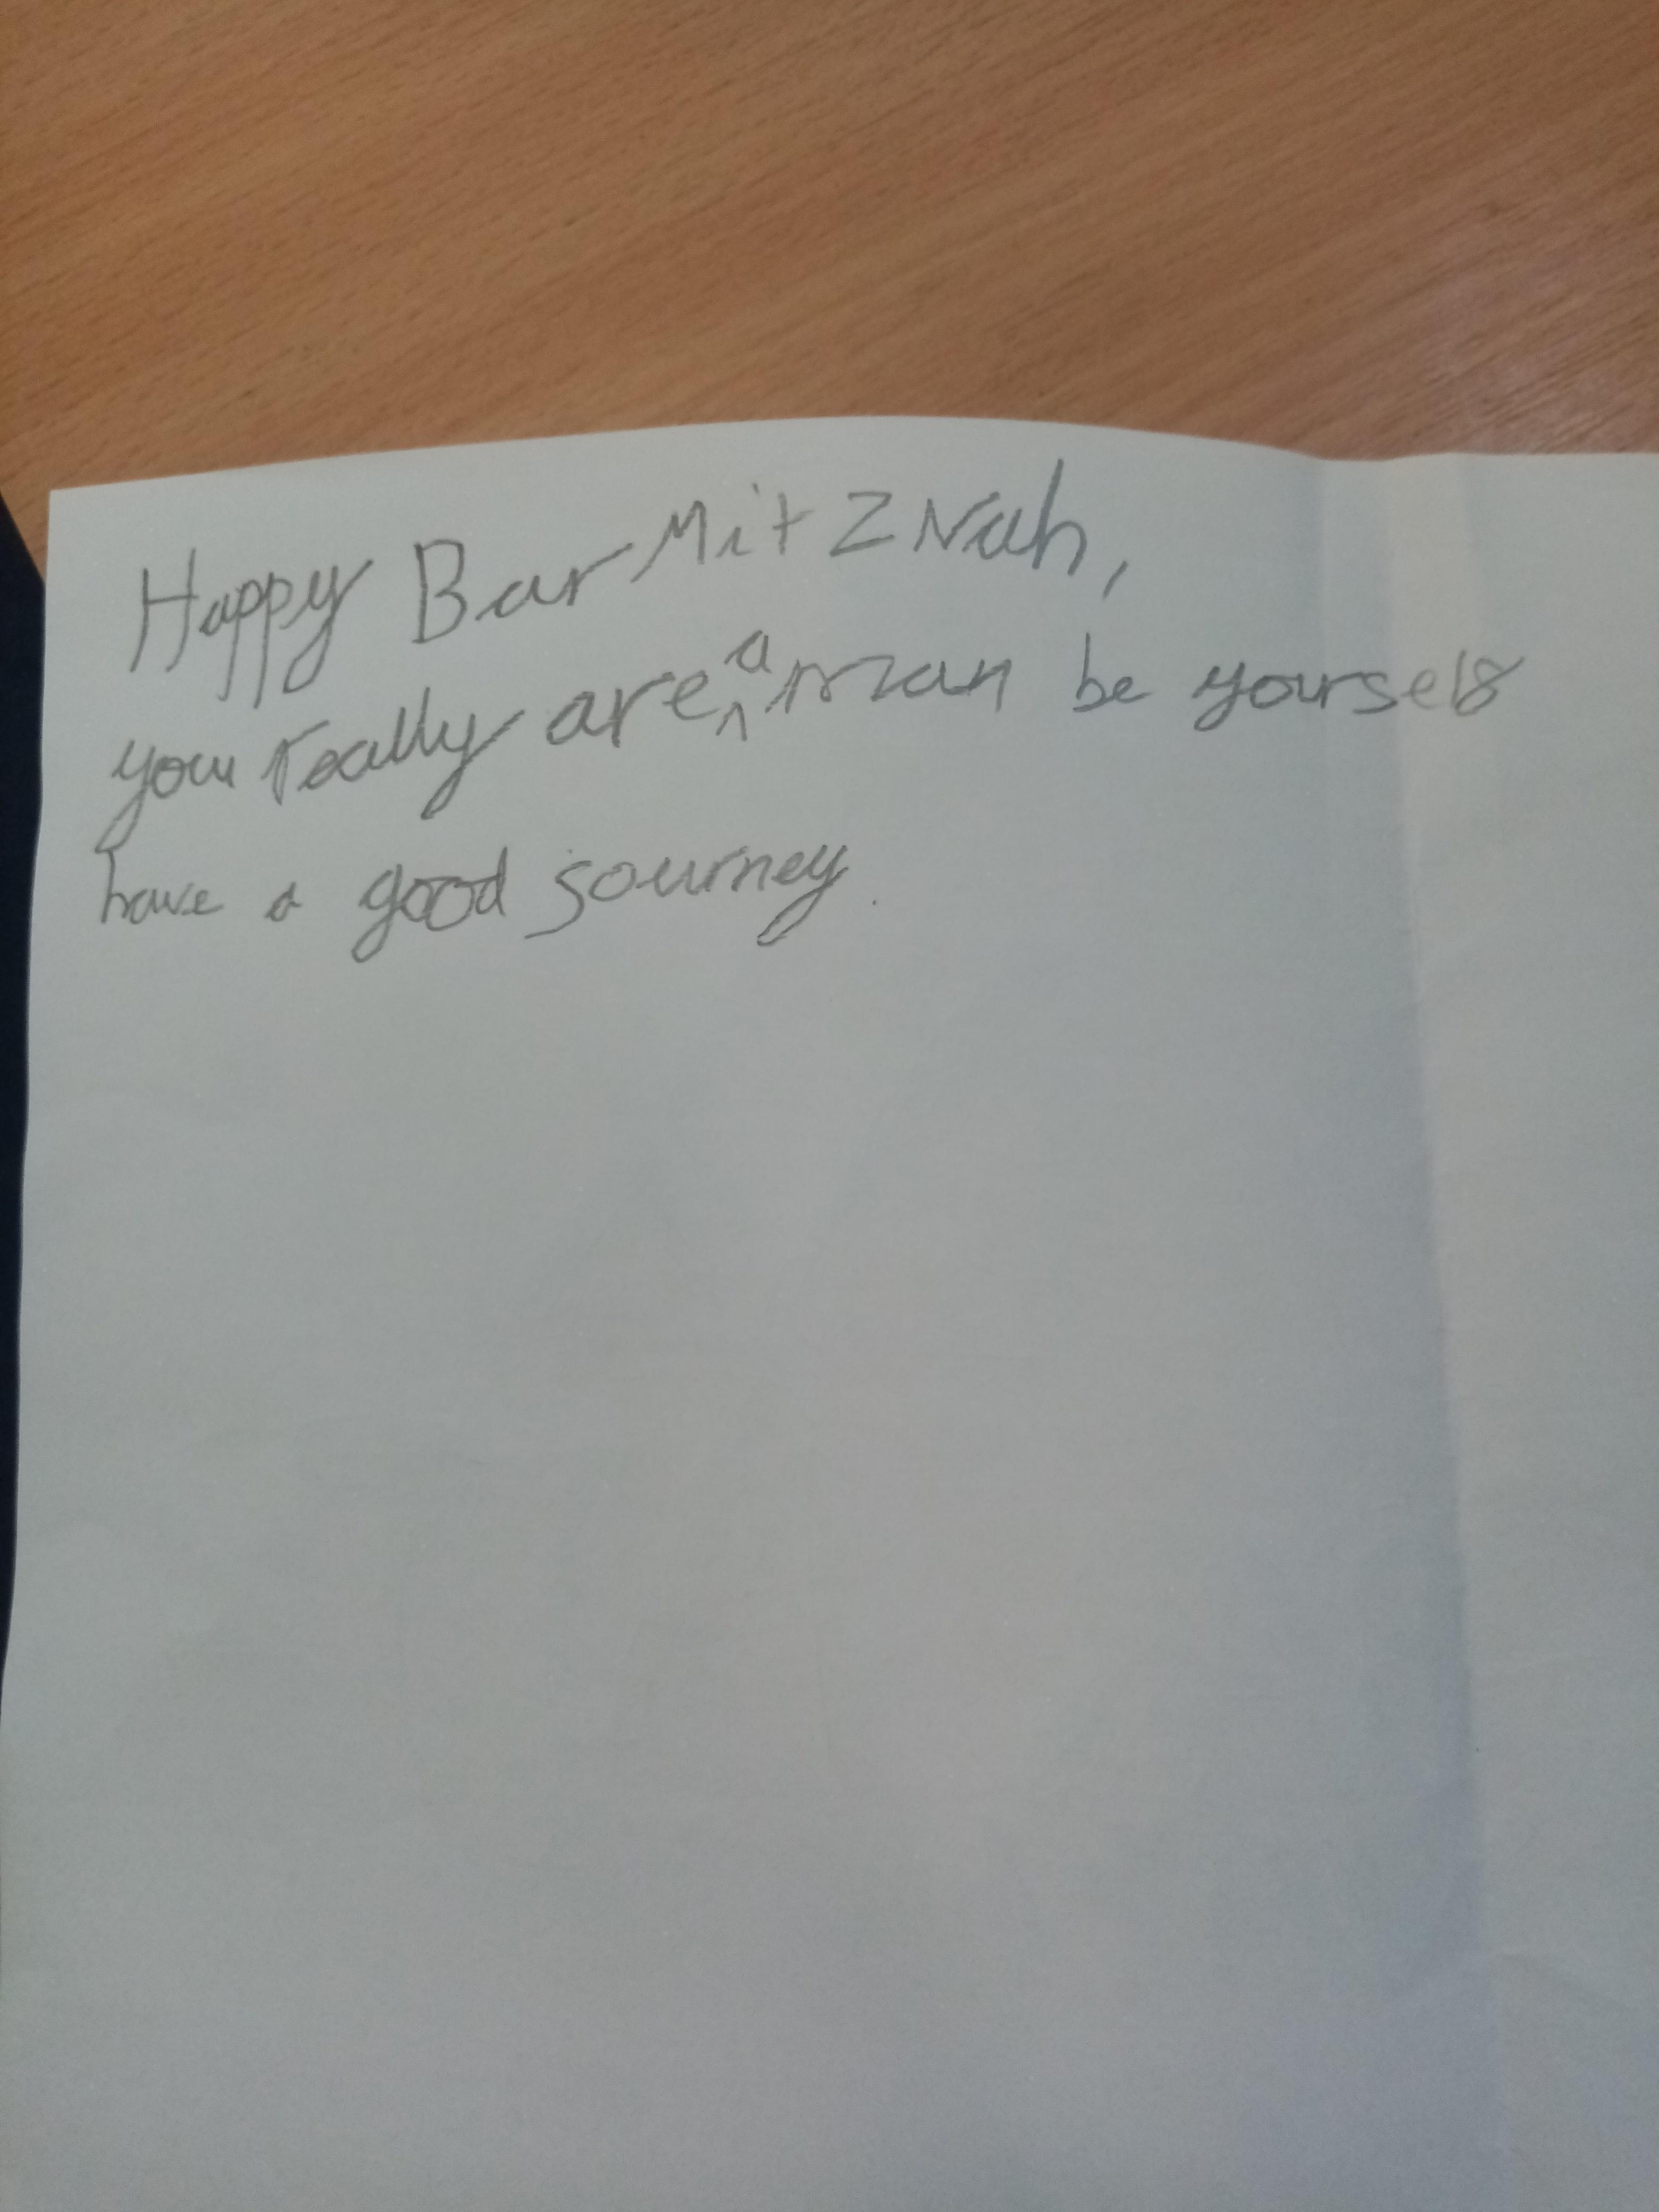 Happy Bar Mitzvah,
you really are a man be yourself
have a good journey.